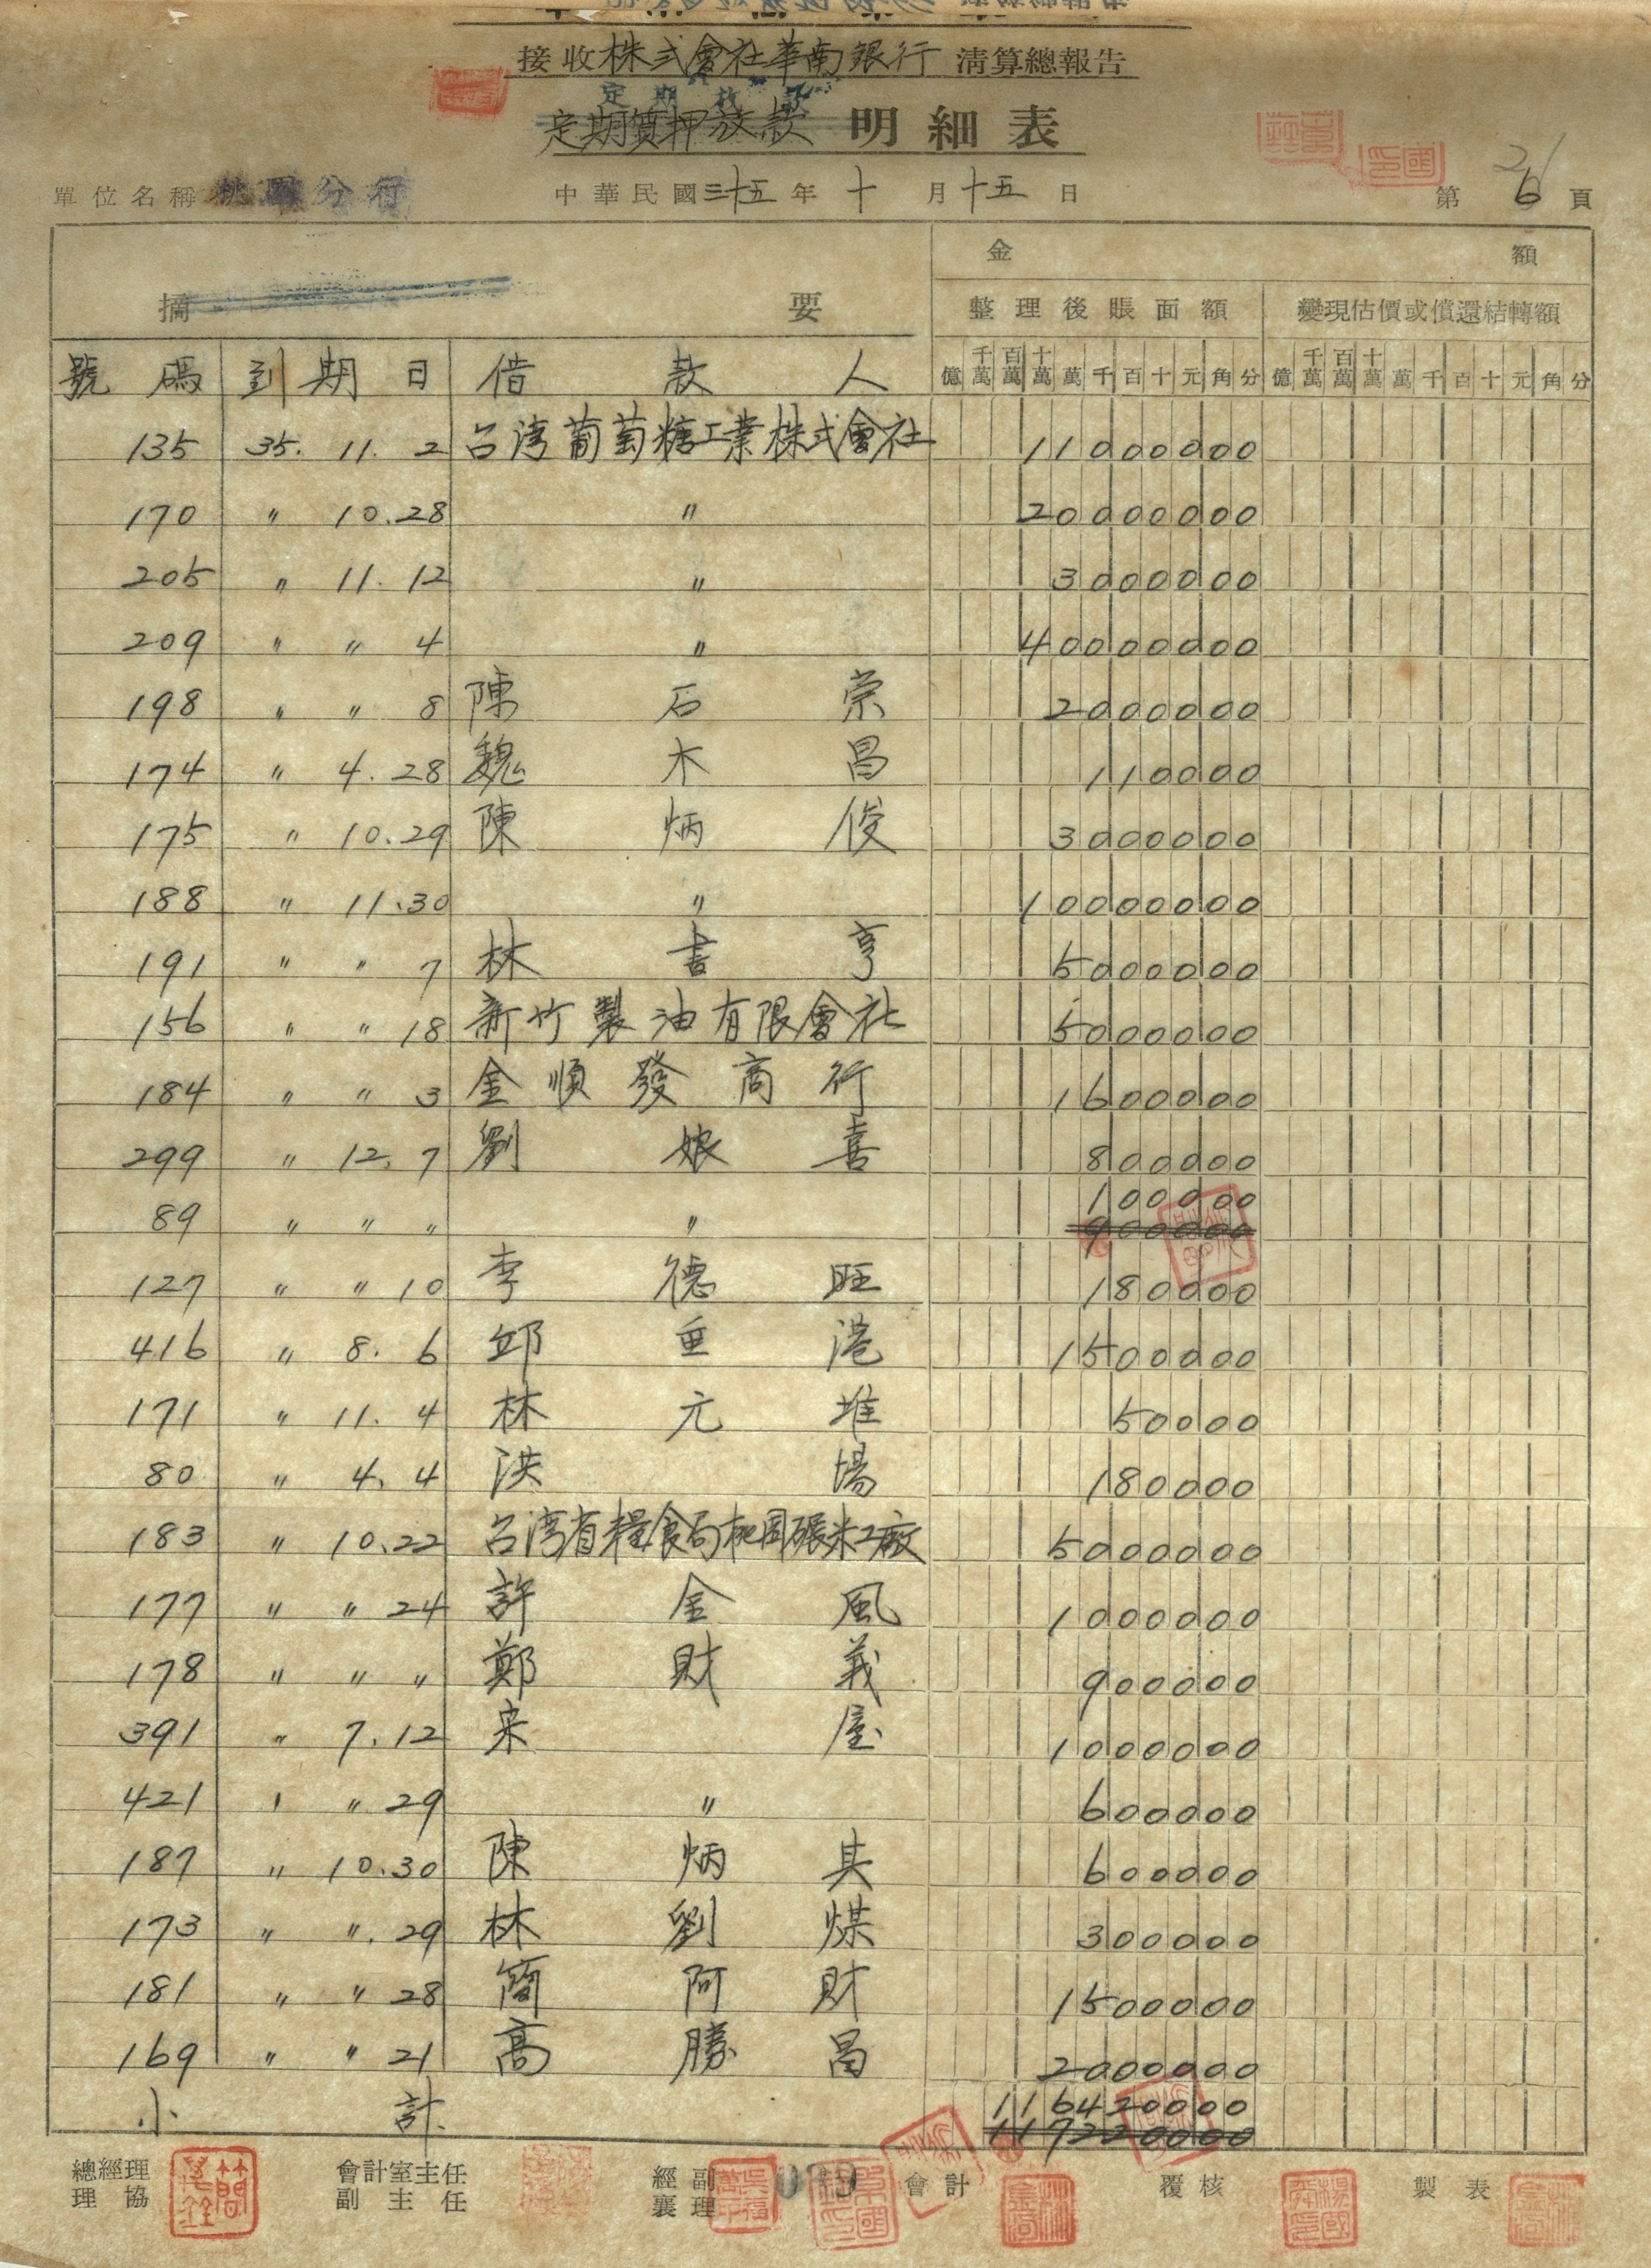 接收株式會社華南銀行清算總報告
定期放款
定期質押放款 明細表
單位名稱 桃園分行 中華民國三十五年十月十五日 第6頁
金額
摘要 整理後賬面額 變現估價或償還結轉額
號碼 到期日 借款人 億千萬百萬十萬萬千百十元角分 億千萬百萬十萬萬千百十元角分
135 35. 11. 2 台湾葡萄糖工業株式會社 11000000
170 〃 10.28 〃 20000000
205 〃 11. 12 〃 3000000
209 〃 〃 4 〃 40000000
198 〃 〃 8 陳石崇 2000000
174 〃 4. 28 魏木昌 110000
175 〃 10.29 陳炳俊 3000000
188 〃 11.30 〃 10000000
191 〃 〃 7 林書亨 5000000
156 〃 〃 18 新竹製油有限會社 5000000
184 〃 〃 3 金順發商行 1600000
299 〃 12. 7 劉娘喜 800000
100000
89 〃 〃 〃 〃 900000
127 〃 〃 10 李德旺 180000
416 〃 8. 6 邱垂港 1500000
171 〃 11. 4 林元堆 50000
80 〃 4. 4 洪場 180000
183 〃 10.22 台湾省糧食局桃園碾米工廠 5000000
177 〃 〃 24 許金風 1000000
178 〃 〃 〃 鄭財義 900000
391 〃 7. 12 宋屋 1000000
421 〃 〃 29 〃 600000
187 〃 10.30 陳炳其 600000
173 〃 〃. 29 林劉煤 300000
181 〃 〃 28 簡阿財 1500000
169 〃 〃 21 高勝昌 2000000
116420000
小計 117220000
總經理 會計室主任 經副 會計 覆核 製表
理協 副主任 襄理